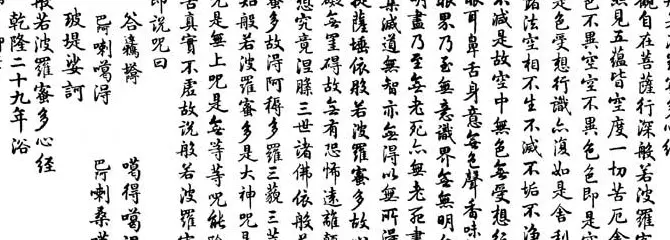 觀自在菩薩行深般若波羅
照見五蘊皆空度一切苦厄舍
色不異空空不異色色即是
是色受想行識亦復如是舍利
諸法空相不生不滅不垢不淨
不減是故空中無色無受想
眼耳鼻舌身意無色聲香味
眼界乃至無意識界無無明
明盡乃至無老死亦無老死盡
集滅道無智亦無得以無所得
提薩埵依般若波羅蜜多故
礙無罣礙故無有恐怖遠離顛
想究竟涅槃三世諸佛依般若
蜜多故得阿耨多羅三藐三菩
知般若波羅蜜多是大神呪
呪是無上呪是無等等呪能除
苦真實不虛故說般若波羅蜜
即說呪曰
噶得噶得
喇噶得 喇桑噶
玻堤娑訶
般若波羅蜜多心經
乾隆二十九年浴